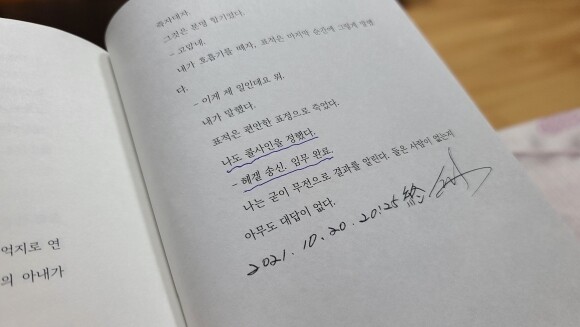 억지로 연
의 아내가
자자대자.
그것은 분명 암기였다.
- 고맙네.
내가 호흡기를 빼자, 표적은 마지막 순간에 그렇게 말했
다.
- 이게 제 일인데요 뭐.
내가 말했다.
표적은 편안한 표정으로 죽었다.
나도 콜사인을 정했다.
- 헤겔 송신. 임무 완료.
나는 굳이 무전으로 결과를 알린다. 들은 사람이 없는지
아무도 대답이 없다.
2021. 10. 20. 20:25 終